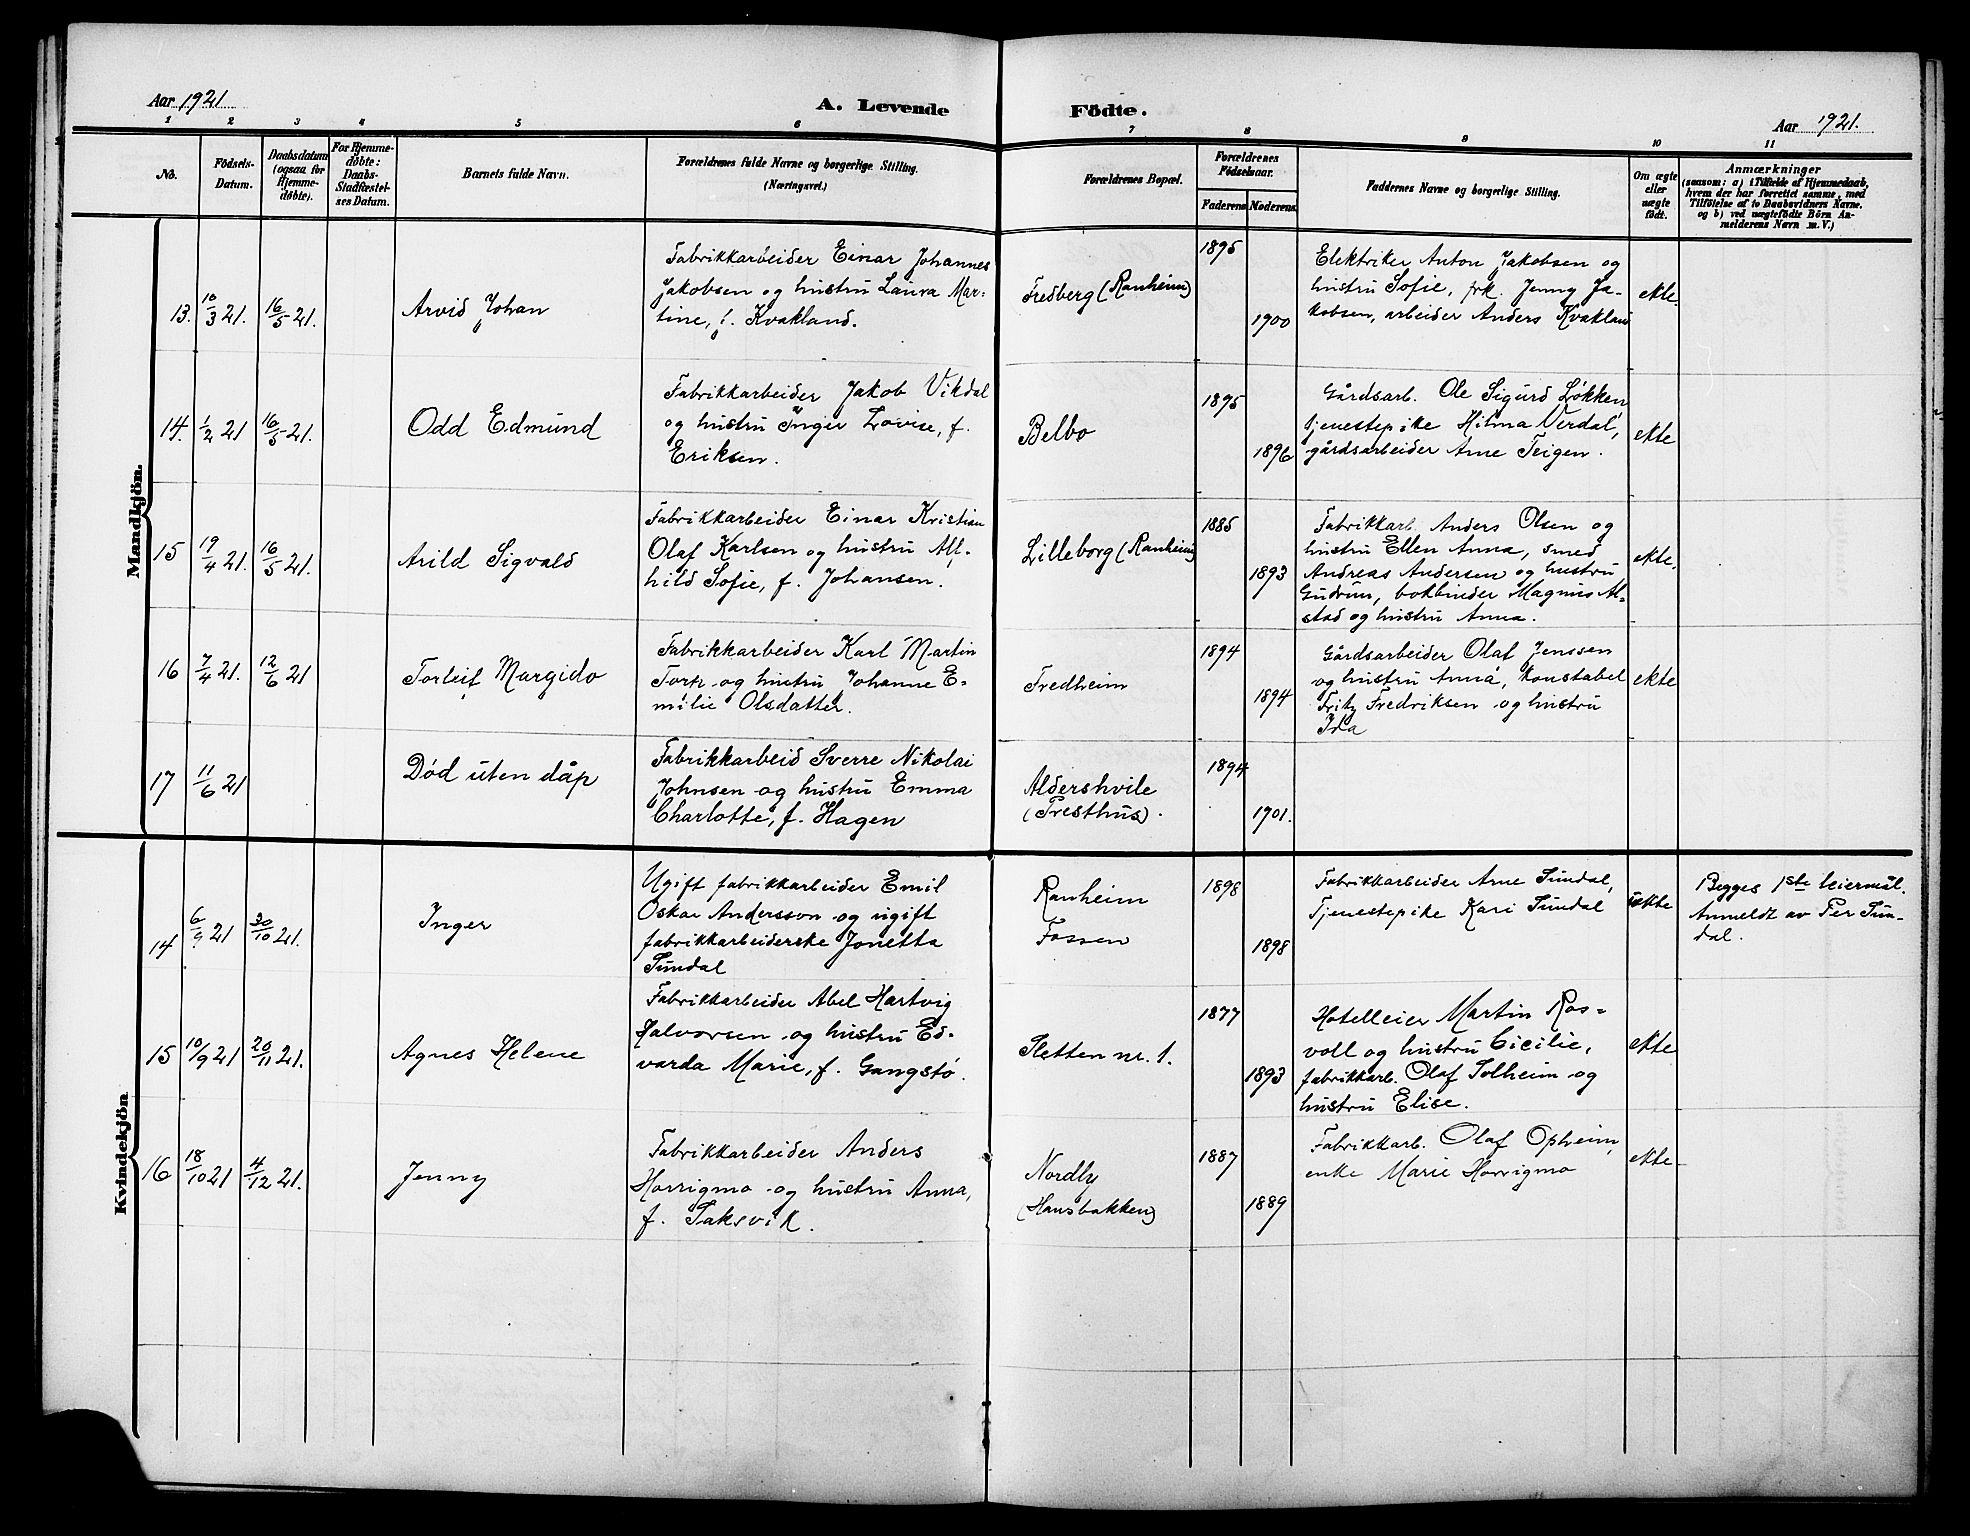 Aar 1921
A. Levende
Födte.
Aar 1921.
1
2
3
4
5
6
7
8
9
10
11
No.
Födsels-
Datum.
Daabsdatum
(ogsaa for
Hjemme-
döbte).
For Hjemme-
döbte:
Daabs-
Stadfæstel-
ses Datum.
Barnets fulde Navn.
Forældrenes fulde Navne og borgerlige Stilling.
(Næringsvei.)
Forældrenes Bopæl.
Forældrenes
Födselsaar.
Faderens
Moderens.
Faddernes Navne og borgerlige Stilling.
Om ægte
eller
uægte
födt.
Anmærkninger
(saasom: a) i Tilfælde af Hjemmedaab,
hvem der har forrettet samme, med
Tilföielse af to Daabsvidners Navne.
og b) ved uægtefödte Börn An-
melderens Navn m. V.)
Mandkjön.
13.
10/3 21.
16/5 21.
Arvid Johan
Fabrikkarbeider Einar Johannes
Jakobsen og hustru Laura Mar-
tine, f. Kvakland.
Fredberg (Ranheim)
1895
1900
Elektriker Anton Jakobsen og
hustru Sofie, frk. Jenny Ja-
kobsen, arbeider Anders Kvakland
ekte.
14.
1/2 21
16/5 21.
Odd Edmund
Fabrikkarbeider Jakob Vikdal
og hustru Inger Lovise, f.
Eriksen.
Belbo
1895
1896
Gårdsarb. Ole Sigurd Løkken
tjenestepike Hilma Verdal,
gårdsarbeider Arne Teigen.
ekte
15
19/4 21.
16/5 21.
Arild Sigvald
Fabrikkarbeider Einar Kristian
Olaf Karlsen og hustru Alf-
hild Sofie, f. Johansen.
Lilleborg (Ranheim)
1885
1893
Fabrikkarb. Anders Olsen og
hustru Ellen Anna, smed
Andreas Andersen og hustru
Gudrun, bokbinder Magnus Al-
stad og hustru Anna.
ekte.
16
7/4 21.
12/6 21
Torleif Margido
Fabrikkarbeider Karl Martin
Torp og hustru Johanne E-
milie Olsdatter.
Fredheim
1894
1894
Gårdsarbeider Olaf Jenssen
og hustru Anna, konstabel
Fritz Fredriksen og hustru
Ida
ekte
17
11/6 21
Død uten dåp
Fabrikkarbeid Sverre Nikolai
Johnsen og hustru Emma
Charlotte, f. Hagen
Aldershvile
(Presthus).
1894
1901.
Kvindekjön
14
6/9 21
30/10 21.
Inger
Ugift fabrikkarbeider Emil
Oskar Andersson og ugift
fabrikkarbeiderske Jonetta
Sundal
Ranheim
Fossen
1898
1898
Fabrikkarbeider Arne Sundal,
Tjenestepike Kari Sundal
uekte
Begges 1ste leiermål.
Anmeldt av Per Sun-
dal.
15
10/9 21
20/11 21.
Agnes Helene
Fabrikkarbeider Abel Hartvig
Halvorsen og hustru Ed-
varda Marie, f. Gangstø.
Sletten nr. 1.
1877
1893
Hotelleier Martin Ros-
voll og hustru Cicilie,
fabrikkarb. Olaf Solheim og
hustru Elise.
ekte
16
18/10 21
4/12 21.
Jenny
Fabrikkarbeider Anders
Horrigmo og hustru Anna,
f. Saksvik.
Nordly
(Hansbakken)
1887
1889
Fabrikkarb. Olaf Opheim,
enke Marie Horrigmo
ekte